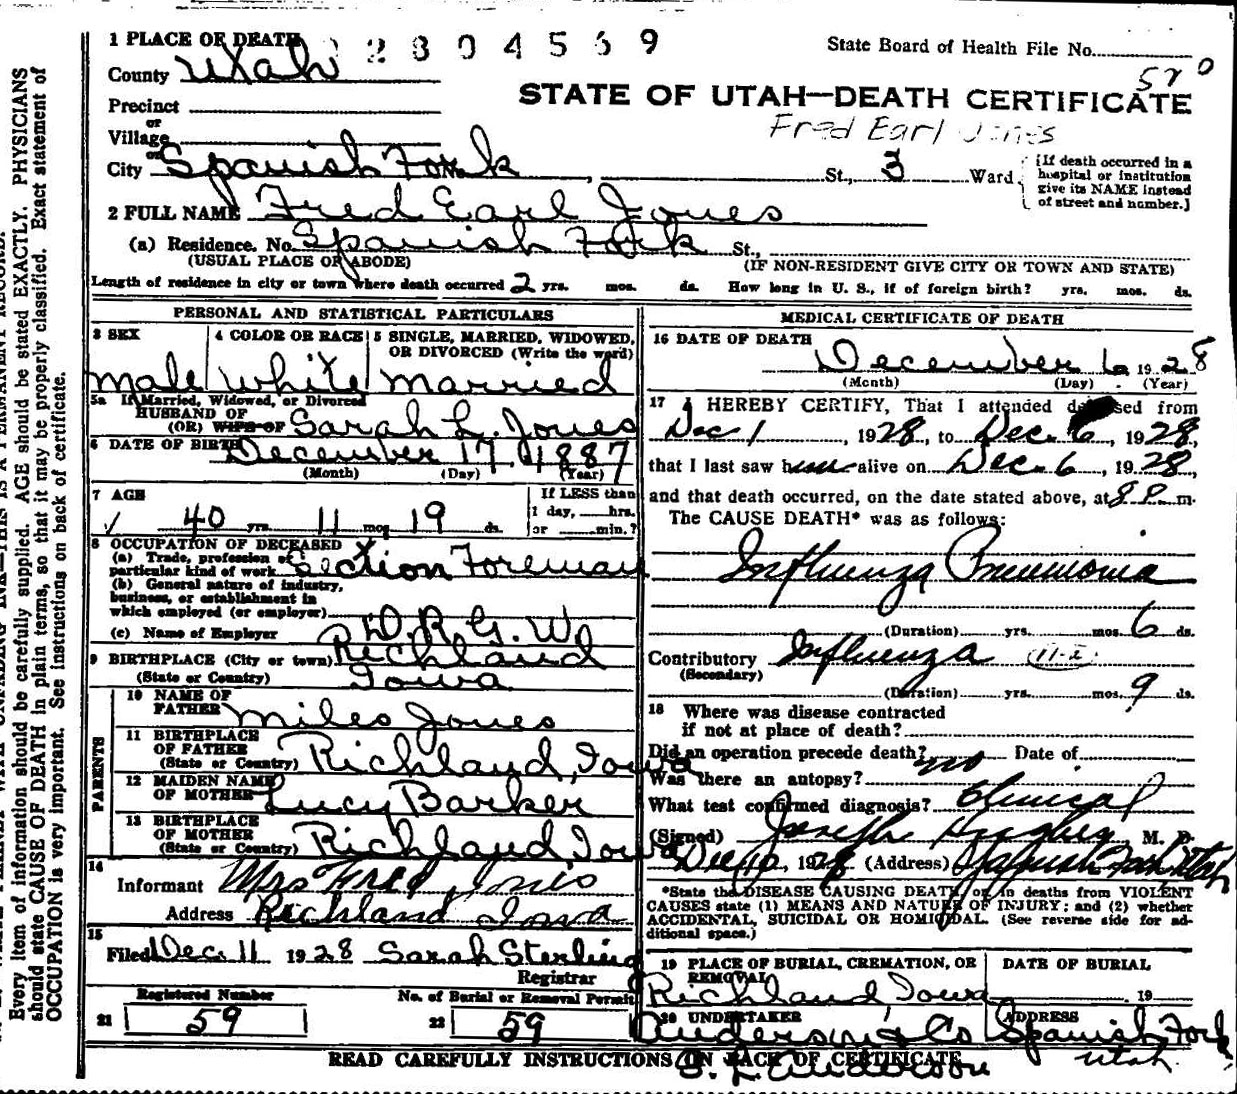 1 PLACE OF DEATH 2804569 State Board of Health File No.
County Utah 570
STATE OF UTAH—DEATH CERTIFICATE
Precinct
or
Village
or
Fred Earl Jones
City Spanish Fork St., 3 Ward
[If death occurred in a hospital or institution give its NAME instead of street and number.]
2 FULL NAME Fred Earl Jones
(a) Residence. No. Spanish Fork St.,
(USUAL PLACE OF ABODE) (IF NON-RESIDENT GIVE CITY OR TOWN AND STATE)
Length of residence in city or town where death occurred 2 yrs. mos. ds. How long in U. S., if of foreign birth? yrs. mos. ds.
PERSONAL AND STATISTICAL PARTICULARS
3 SEX 4 COLOR OR RACE 5 SINGLE, MARRIED, WIDOWED, OR DIVORCED (Write the word)
Male White Married
5a If Married, Widowed, or Divorced
HUSBAND OF
(OR) WIFE OF Sarah L. Jones
6 DATE OF BIRTH December 17 1887
(Month) (Day) (Year)
7 AGE If LESS than
1 day, hrs.
40 yrs. 11 mos. 19 ds. or min.?
8 OCCUPATION OF DECEASED
(a) Trade, profession or
particular kind of work Section Foreman
(b) General nature of industry,
business, or establishment in
which employed (or employer)
(c) Name of Employer D. R. G. W.
9 BIRTHPLACE (City or town) Richland
(State or Country) Iowa
PARENTS
10 NAME OF
FATHER Miles Jones
11 BIRTHPLACE
OF FATHER
(State or Country) Richland, Iowa
12 MAIDEN NAME
OF MOTHER Lucy Barker
13 BIRTHPLACE
OF MOTHER
(State or Country) Richland Iowa
14
Informant Mrs Fred Jones
Address Richland Iowa
15
Filed Dec. 11 1928 Sarah Sterling
Registrar
Registered Number No. of Burial or Removal Permit
21 59 22 59
MEDICAL CERTIFICATE OF DEATH
16 DATE OF DEATH
December 6 1928
(Month) (Day) (Year)
17 I HEREBY CERTIFY, That I attended deceased from
Dec 1, 1928, to Dec. 6, 1928,
that I last saw him alive on Dec. 6, 1928,
and that death occurred, on the date stated above, at 8 P. m.
The CAUSE DEATH* was as follows:
Influenza Pneumonia
(Duration) yrs. mos. 6 ds.
Contributory Influenza
(Secondary)
(Duration) yrs. mos. 9 ds.
18 Where was disease contracted
if not at place of death?
Did an operation precede death? no Date of
Was there an autopsy?
What test confirmed diagnosis? Clinical
(Signed) Joseph Hughes M. D.
Dec 10, 1928 (Address) Spanish Fork Utah
*State the DISEASE CAUSING DEATH, or in deaths from VIOLENT
CAUSES state (1) MEANS AND NATURE OF INJURY; and (2) whether
ACCIDENTAL, SUICIDAL OR HOMICIDAL. (See reverse side for ad-
ditional space.)
19 PLACE OF BURIAL, CREMATION, OR REMOVAL DATE OF BURIAL
Richland Iowa 19
20 UNDERTAKER ADDRESS
Anderson & Co Spanish Fork
Utah
READ CAREFULLY INSTRUCTIONS ON BACK OF CERTIFICATE
Anderson
Every item of information should be carefully supplied. AGE should be stated EXACTLY. PHYSICIANS
should state CAUSE OF DEATH in plain terms, so that it may be properly classified. Exact statement of
OCCUPATION is very important. See instructions on back of certificate.